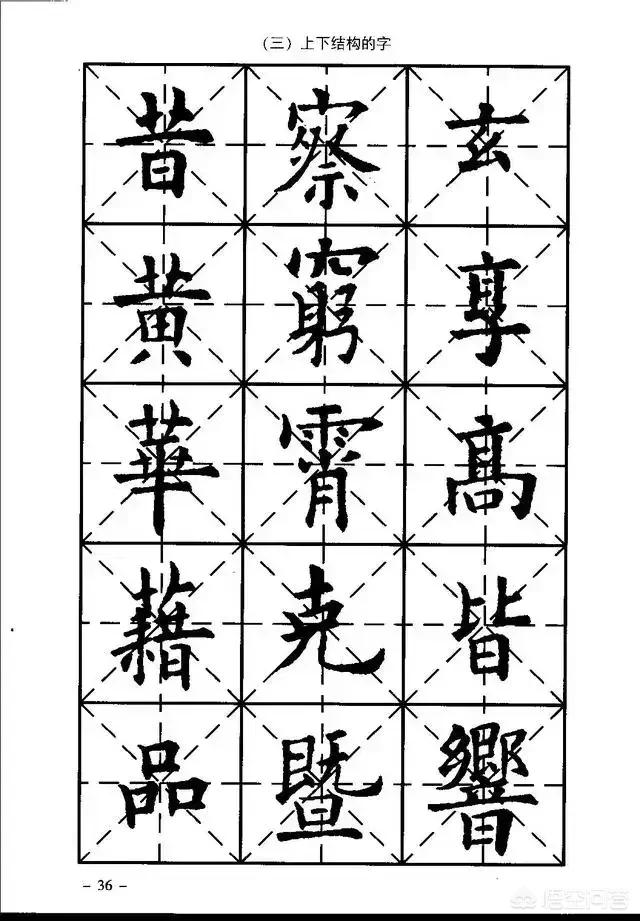 （三）上下结构的字
玄享髙皆響
察窮霄尭暨
昔黄華藉品
- 36 -
悟空问答